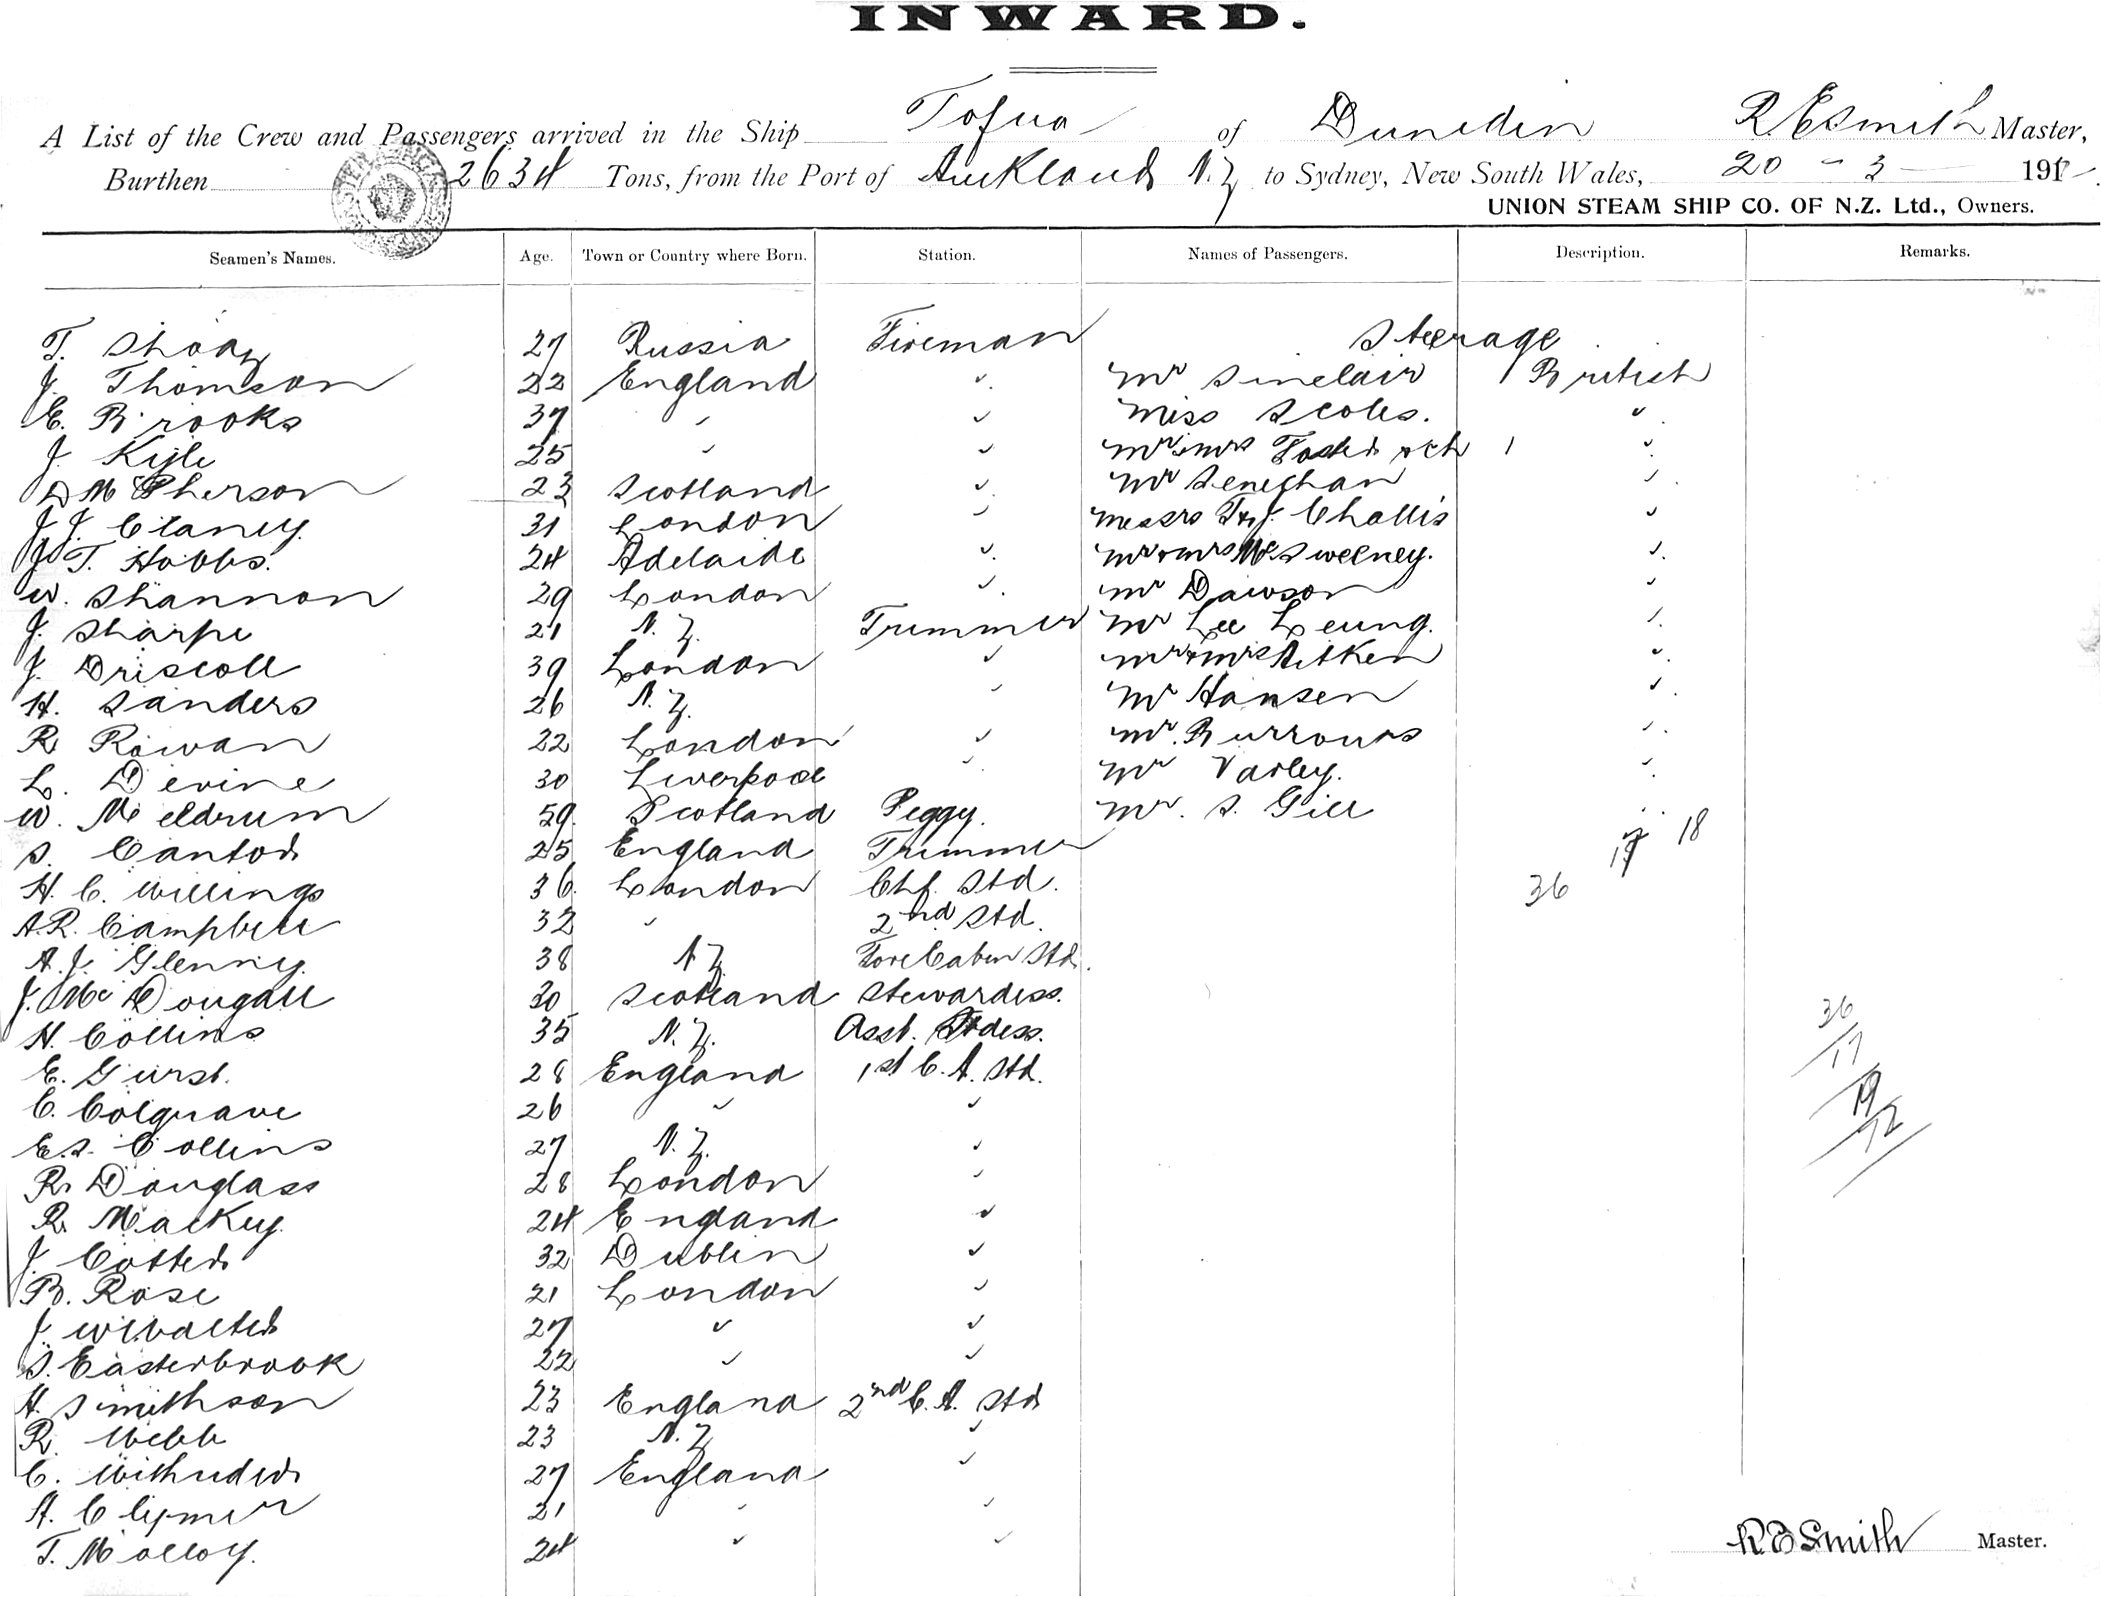 INWARD.
A List of the Crew and Passengers arrived in the Ship Tofua of Dunedin R E Smith Master,
Burthen 2634 Tons, from the Port of Auckland N.Z to Sydney, New South Wales, 20 - 3 191
UNION STEAM SHIP CO. OF N.Z. Ltd., Owners.
Seamen's Names. Age. Town or Country where Born. Station. Names of Passengers. Description. Remarks.
T. 27 Russia Fireman Steerage
J. Thomson 22 England " Mr Sinclair 1 British
E. Brooks 37 " " Miss Scoles. "
J. Kyle 25 " " Mr & Mrs Foster & ch 1 "
D McPherson 23 Scotland " Mr "
J J. Clancy. 31 London " Messrs T & J. Challis "
J T. Hobbs. 24 Adelaide " Mr & Mrs McSweeney. "
W. Shannon 29 London " Mr Dawson "
J. Sharpe 21 N.Z. Trimmer Mr Lee Leung. "
J. Driscoll 39 London " Mr & Mrs Aitken "
H. Sanders 26 N.Z. " Mr Hansen "
R Rowan 22 London " Mr. Burrows "
L. Devine 30 Liverpool " Mr Varley. "
W. Meldrum 59. Scotland Peggy. Mr. S. Gill "
S. Cantor 25 England Trimmer 18
H. C. Willings 36. London Chf. Std. 36
A.R. Campbell 32 " 2nd Std.
A. J. Glenny. 38 N Z. Fore Cabin Std.
J. McDougall 30 Scotland Stewardess.
H. Collins 35 N.Z. Asst. Stdess. 36
E. Gurst. 28 England 1st C. A. Std. 17
C. Colgrave 26 " " 19
E.S. Collins 27 N.Z. " 12
R. Douglass 28 London "
R. Mackey. 24 England "
J. Cotter 32 Dublin "
B. Rose 21 London "
J. 27 " "
S. Easterbrook 22 " "
H. Smithson 23 England 2nd C. A. Std
R. Webb 23 N.Z "
C. 27 England "
A. Clymer 21 " "
T. Molloy. 24 " "
R E Smith Master.